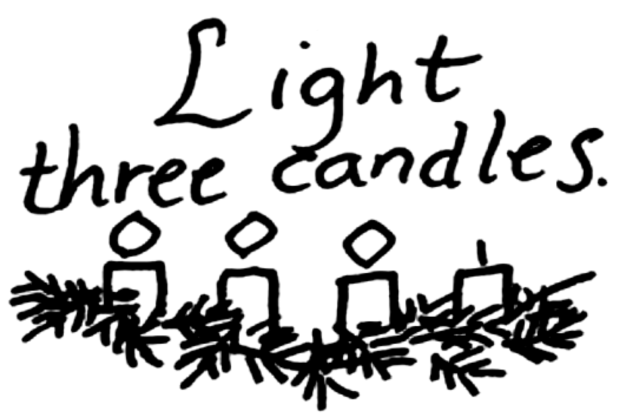 Light
three candles.